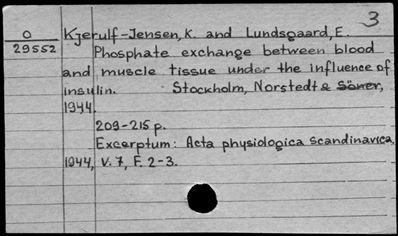 3
O Kjerulf-Jensen, K. and Lundsgaard, E.
29552 Phosphate exchange between blood
and muscle tissue under the influence of
insulin. Stockholm, Norstedt & Söner,
1944.
209-215 p.
Excerptum: Acta physiologica scandinavica,
1944, V. 7, F. 2-3.